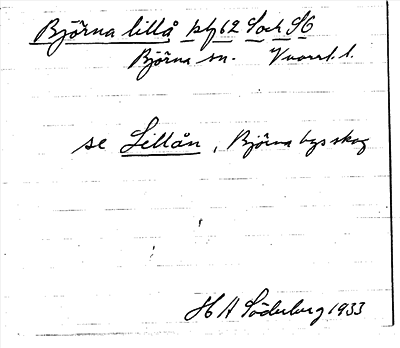 Björna lillå kbl 62 S och S6
Björna sn. Vuorst. l.
se Lillån, Björna bys skog
H A Söderberg 1933